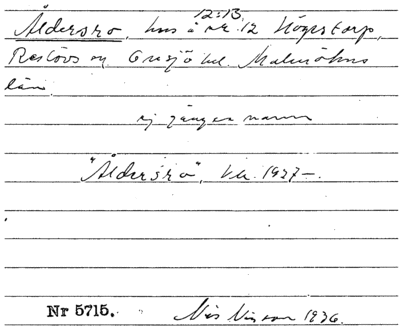 12:13
Åldersro, hus å nr 12 Högstorp,
Reslövs sn Onsjö hd. Malmöhus
län.
ej gänge namn
"Åldersro", k.b. 1927-.
Nr 5715. Nils Nilsson 1936.